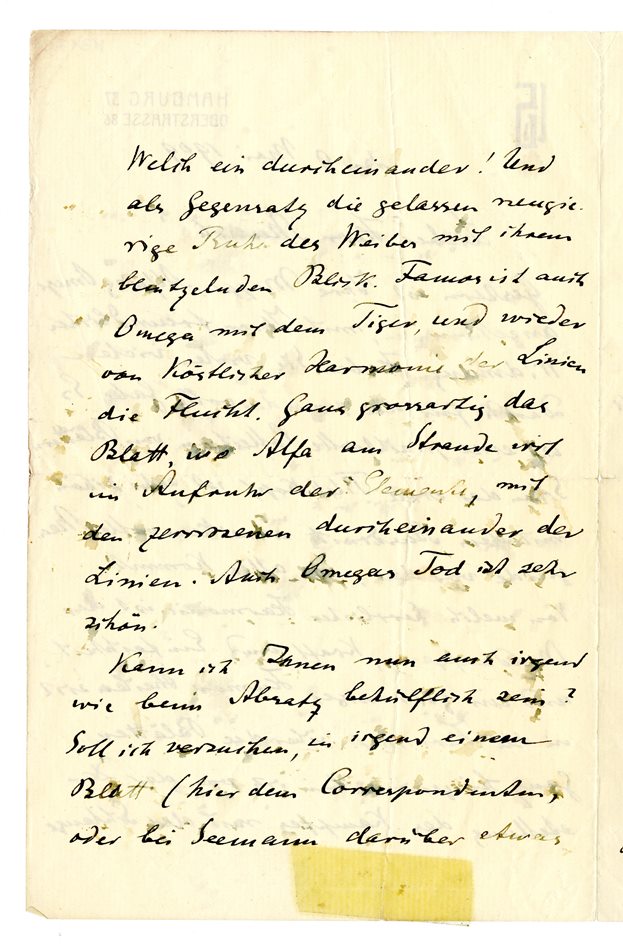 Welch ein durcheinander! Und
als Gegensatz die gelassen neugie-
rige Ruhe des Weibes mit ihrem
blinzelnden Blick. Famos ist auch
Omega mit dem Tiger, und wieder
von köstlicher Harmonie der Linien
die Flucht. Ganz grossartig das
Blatt, wo Alfa am Strande irrt
im Aufruhr der Elemente, mit
den zerrissenen durcheinander der
Linien. Auch Omegas Tod ist sehr
schön.
Kann ich Ihnen nun auch irgend
wie beim Absatz behülflich sein?
Soll ich versuchen, in irgend einem
Blatt (hier dem Correspondenten,
oder bei Seemann darüber etwas
HAMBURG 37
OBERSTRASSE 86